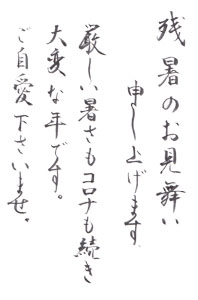 残暑のお見舞い
申し上げます
厳しい暑さもコロナも続き
大変な年です。
ご自愛下さいませ。